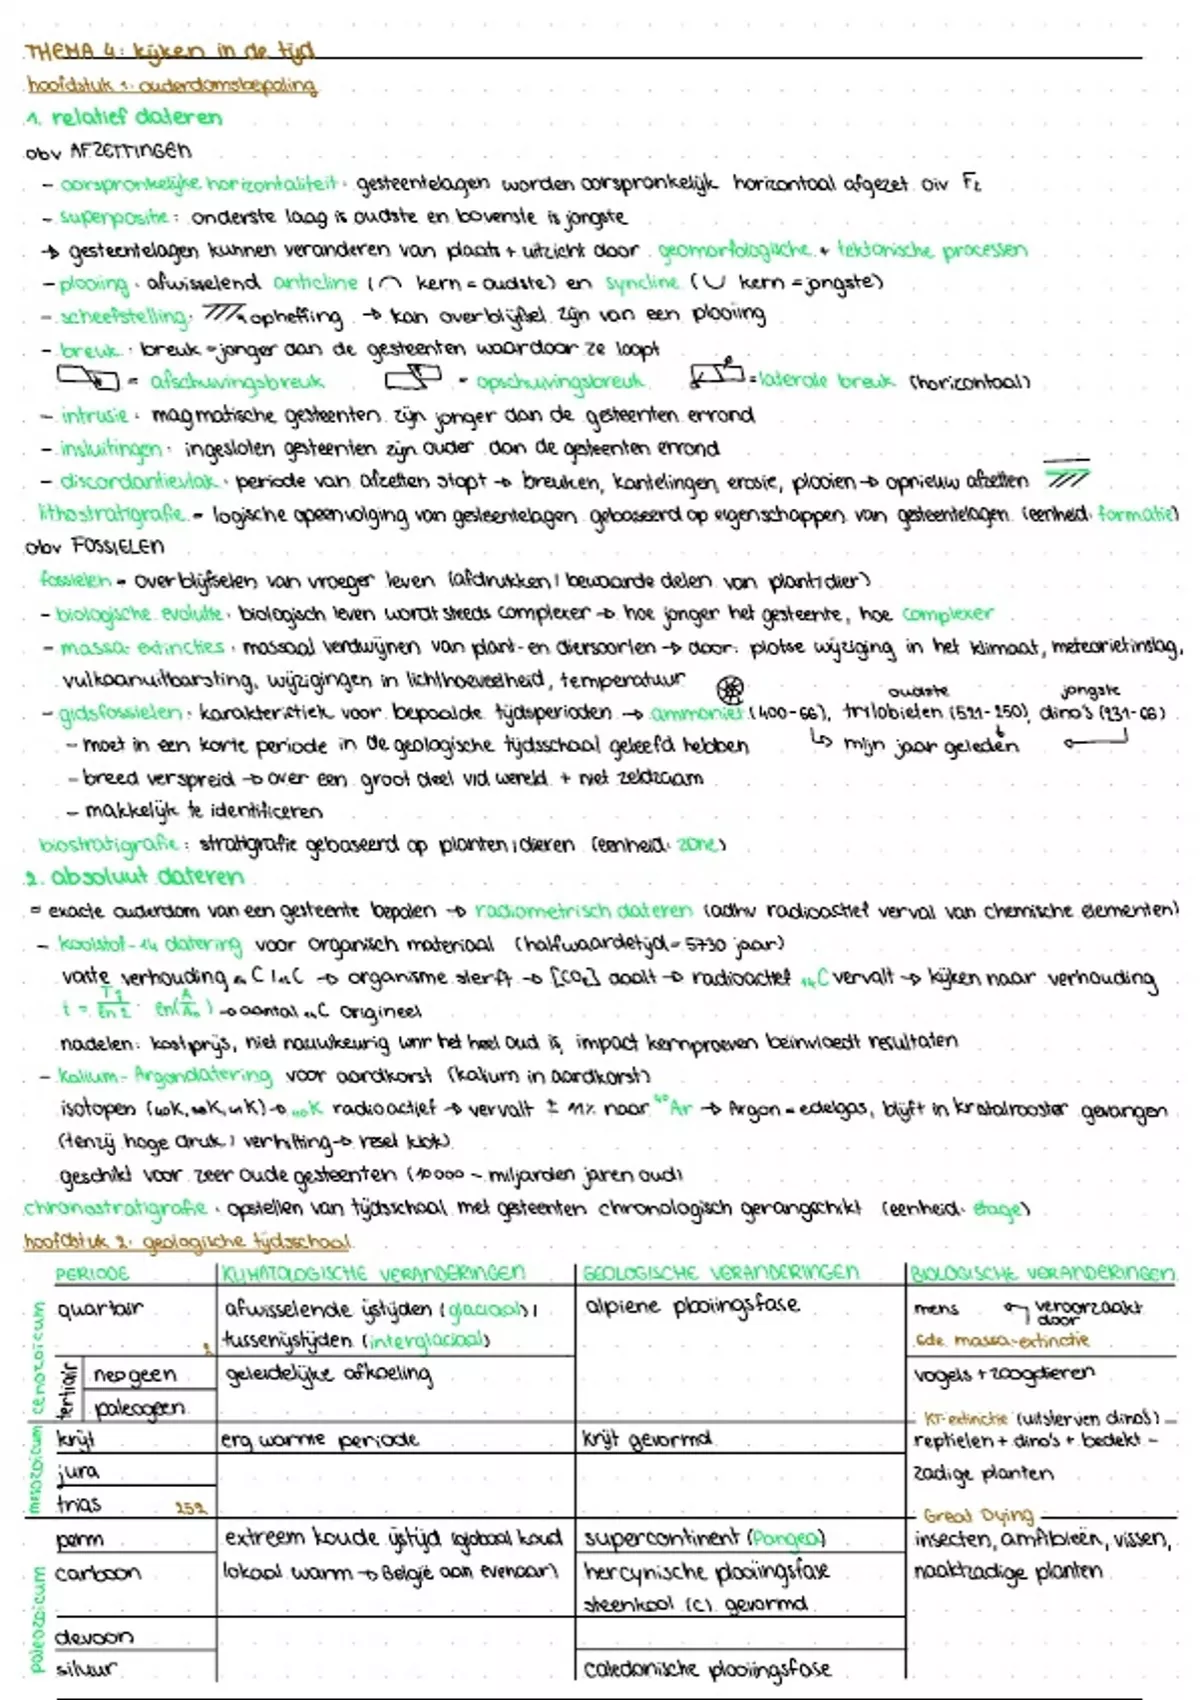 THEMA 4: kijken in de tijd
hoofdstuk 1: ouderdomsbepaling
1. relatief dateren
obv AFZETTINGEN
- oorspronkelijke horizontaliteit: gesteentelagen worden oorspronkelijk horizontaal afgezet oiv Fz
- superpositie: onderste laag is oudste en bovenste is jongste
→ gesteentelagen kunnen veranderen van plaats + uitzicht door geomorfologische + tektonische processen
- plooiing: afwisselend anticline (∩ kern = oudste) en syncline (∪ kern = jongste)
- scheefstelling: opheffing → kan overblijfsel zijn van een plooiing
- breuk: breuk = jonger dan de gesteenten waardoor ze loopt
= afschuivingsbreuk = opschuivingsbreuk = laterale breuk (horizontaal)
- intrusie: magmatische gesteenten zijn jonger dan de gesteenten errond
- insluitingen: ingesloten gesteenten zijn ouder dan de gesteenten errond
- discordantievlak: periode van afzetten stopt → breuken, kantelingen, erosie, plooien → opnieuw afzetten
lithostratigrafie = logische opeenvolging van gesteentelagen gebaseerd op eigenschappen van gesteentelagen (eenheid: formatie)
obv FOSSIELEN
fossielen = overblijfselen van vroeger leven (afdrukken / bewaarde delen van plant/dier)
- biologische evolutie: biologisch leven wordt steeds complexer → hoe jonger het gesteente, hoe complexer
- massa-extincties: massaal verdwijnen van plant- en diersoorten → door: plotse wijziging in het klimaat, meteorietinslag,
vulkaanuitbarsting, wijzigingen in lichthoeveelheid, temperatuur
oudste jongste
- gidsfossielen: karakteristiek voor bepaalde tijdsperioden → ammoniet (400-66), trilobieten (521-250), dino's (231-66)
- moet in een korte periode in de geologische tijdsschaal geleefd hebben ↳ mijn jaar geleden
- breed verspreid → over een groot deel v/d wereld + niet zeldzaam
- makkelijk te identificeren
biostratigrafie: stratigrafie gebaseerd op planten/dieren (eenheid: zone)
2. absoluut dateren
= exacte ouderdom van een gesteente bepalen → radiometrisch dateren (adhv radioactief verval van chemische elementen)
- koolstof-14 datering voor organisch materiaal (halfwaardetijd = 5730 jaar)
vaste verhouding C / 14C → organisme sterft → [CO2] daalt → radioactief 14C vervalt → kijken naar verhouding
t = T½/ln 2 · ln(A/A0) → aantal 14C origineel
nadelen: kostprijs, niet nauwkeurig wnr het heel oud is, impact kernproeven beïnvloedt resultaten
- Kalium-Argondatering voor aardkorst (kalium in aardkorst)
isotopen (40K, K, 41K) → 40K radioactief → vervalt ± 11% naar 40Ar → Argon = edelgas, blijft in kristalrooster gevangen
(tenzij hoge druk / verhitting → reset klok)
geschikt voor zeer oude gesteenten (10 000 - miljarden jaren oud)
chronostratigrafie: opstellen van tijdsschaal met gesteenten chronologisch gerangschikt (eenheid: etage)
hoofdstuk 2: geologische tijdsschaal
PERIODE KLIMATOLOGISCHE VERANDERINGEN GEOLOGISCHE VERANDERINGEN BIOLOGISCHE VERANDERINGEN
cenozoicum
quartair afwisselende ijstijden (glaciaal) / alpiene plooiingsfase mens veroorzaakt door
2 tussenijstijden (interglaciaal) 6de massa-extinctie
tertiair
neogeen geleidelijke afkoeling vogels + zoogdieren
paleogeen
KT-extinctie (uitsterven dino's)
mesozoicum
krijt erg warme periode krijt gevormd reptielen + dino's + bedekt-
jura zadige planten
trias 252
Great Dying
paleozoicum
perm extreem koude ijstijd (globaal koud supercontinent (Pangea) insecten, amfibieën, vissen,
carboon lokaal warm → België aan evenaar) hercynische plooiingsfase naaktzadige planten
steenkool (C) gevormd
devoon
siluur caledonische plooiingsfase